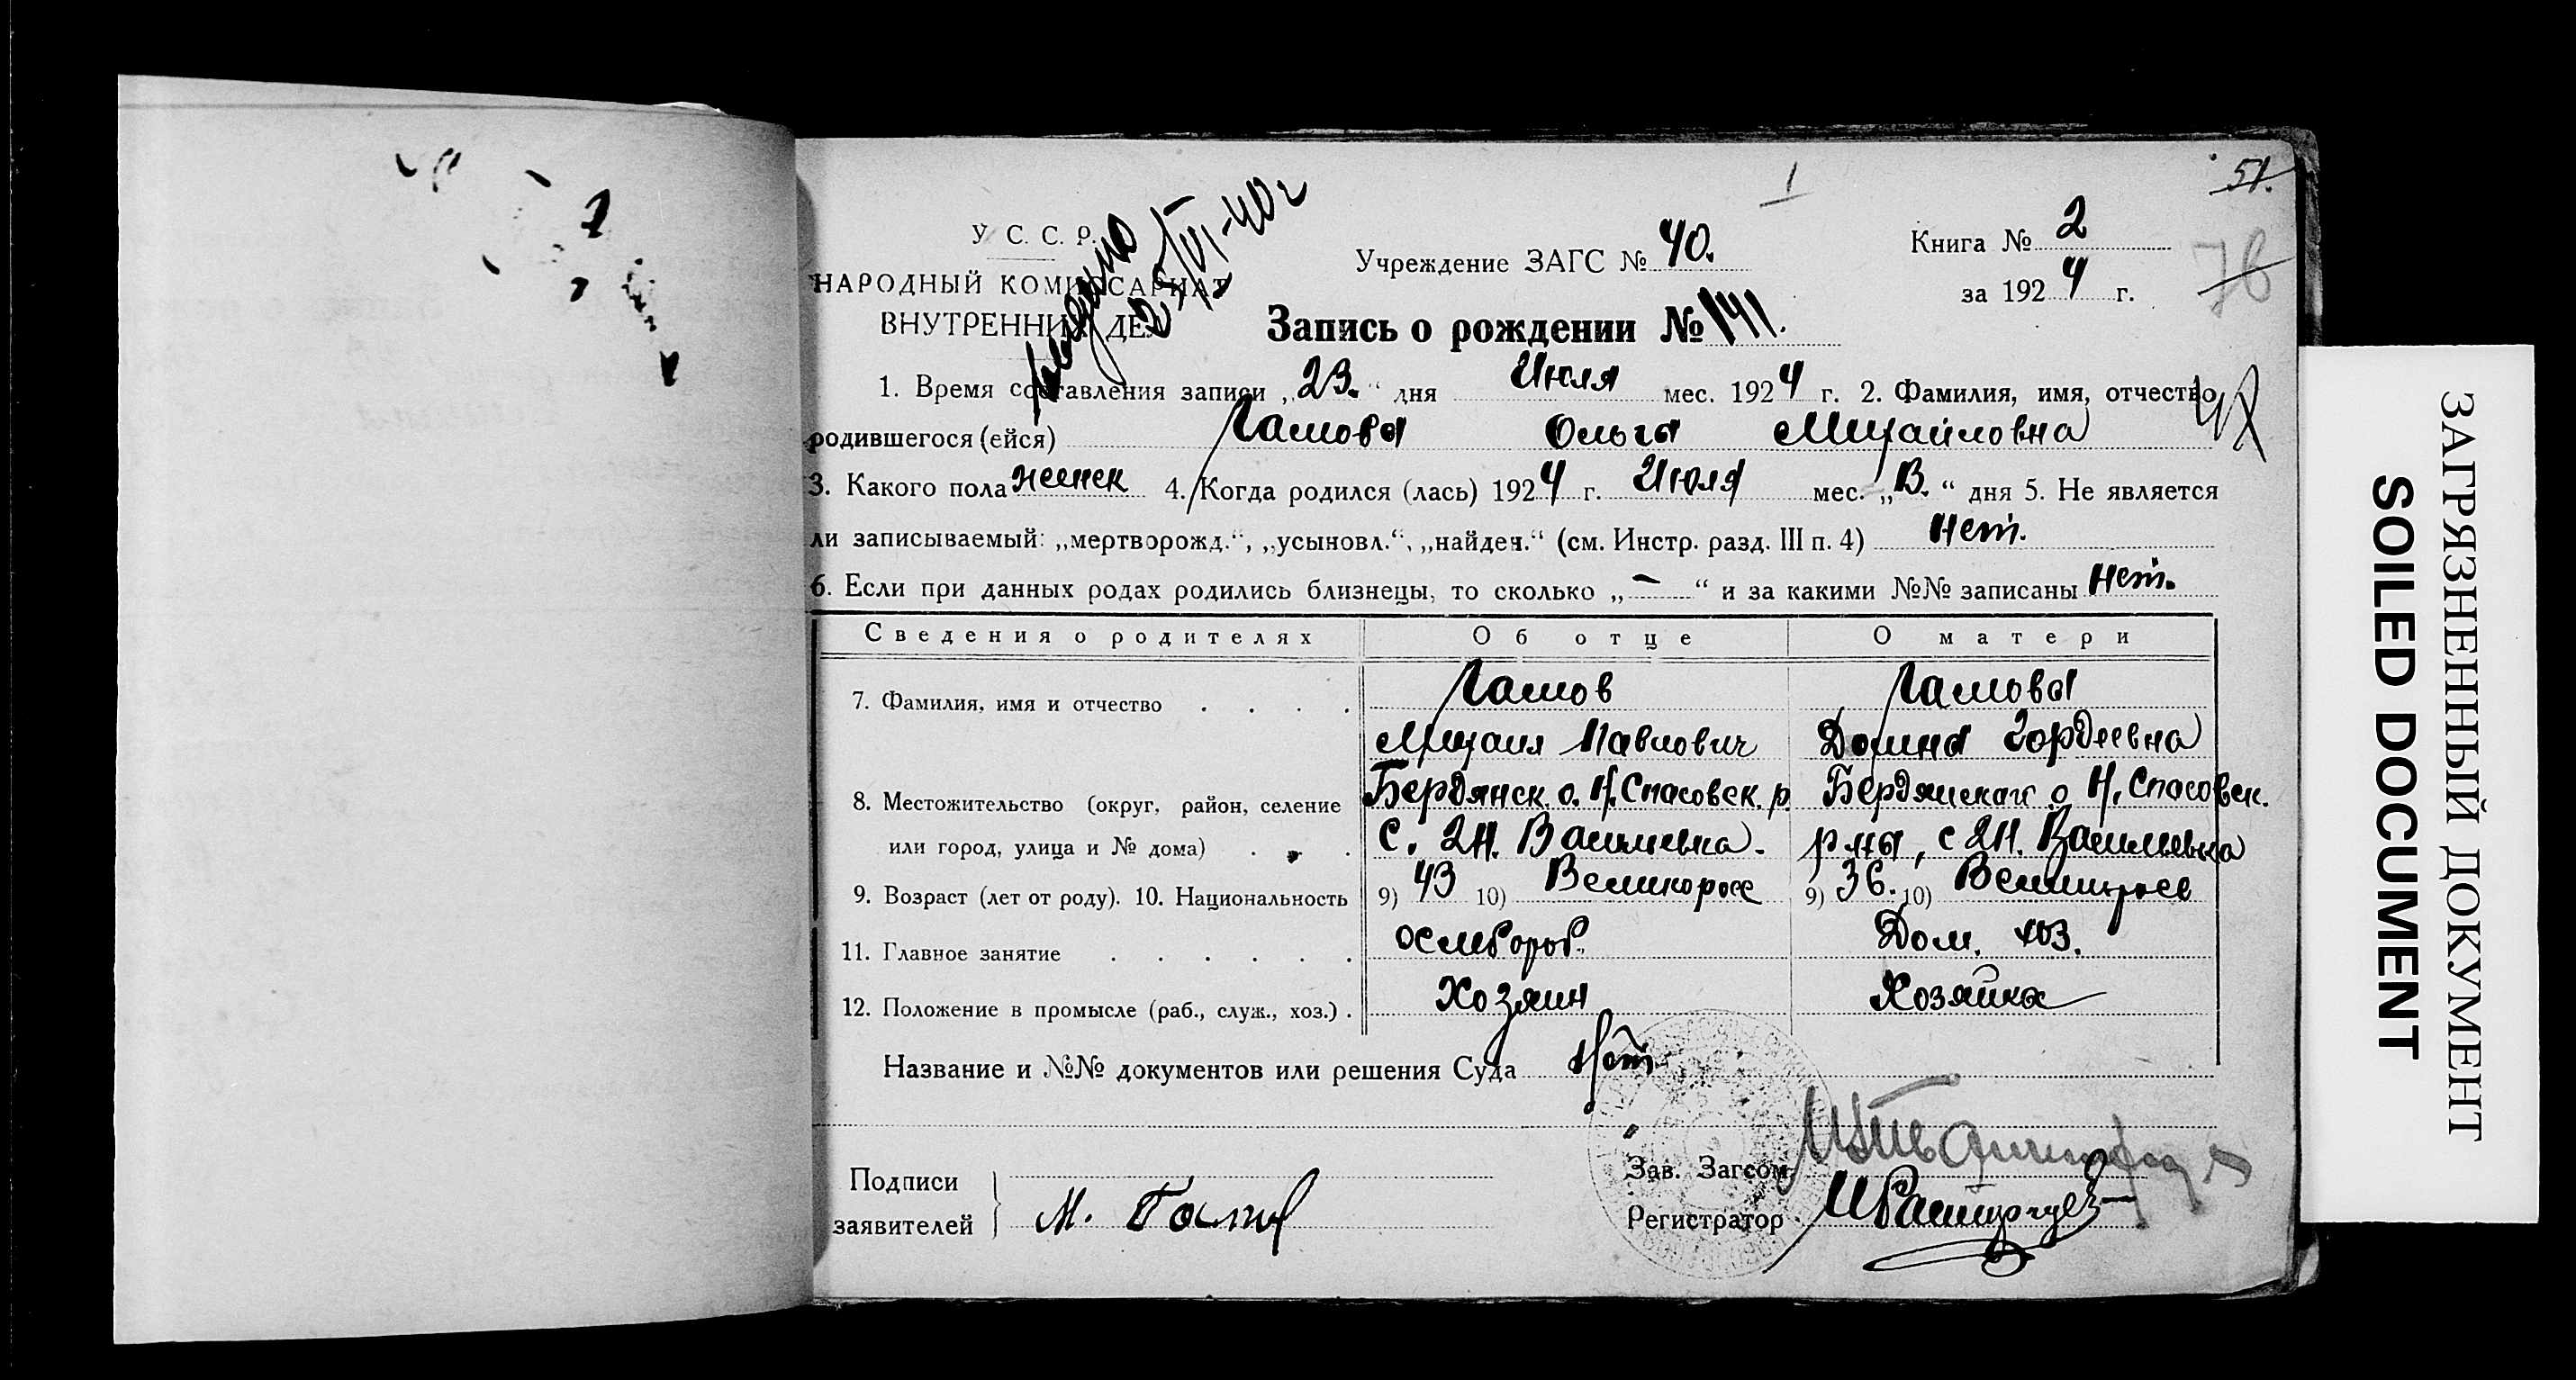 51.
1
У. С. С. Р.
НАРОДНЫЙ КОМИССАРИАТ
ВНУТРЕННИХ ДЕЛ
Учреждение ЗАГС № 40.
Книга № 2
за 1924 г.
78
Запись о рождении № 141.
1. Время составления записи „23.“ дня Июля мес. 1924 г. 2. Фамилия, имя, отчество
родившегося (ейся) Гамова Ольга Михайловна
3. Какого пола женск 4. Когда родился (лась) 1924 г. Июля мес. „ “ дня 5. Не является
ли записываемый: „мертворожд.“, „усыновл.“, „найден.“ (см. Инстр. разд. III п. 4) Нет.
6. Если при данных родах родились близнецы, то сколько „—“ и за какими №№ записаны Нет.
Сведения о родителях Об отце О матери
7. Фамилия, имя и отчество . . . . Гамов Гамова
Михаил Павлович Домна Гордеевна
8. Местожительство (округ, район, селение Бердянск. о. Н. Спасовск. р. Бердянскаг о Н. Спасовск.
или город, улица и № дома) . . . С. 2Н. Васильевка. р-на, с 2Н. Васильевка
9. Возраст (лет от роду). 10. Национальность 9) 43 10) Великоросс 9) 36. 10)
11. Главное занятие . . . . . . Дом. хоз.
12. Положение в промысле (раб., служ., хоз.) . Хозяин Хозяйка
Название и №№ документов или решения Суда Нет
Подписи
заявителей М. Гамов
Зав. Загсом
Регистратор
ЗАГРЯЗНЕННЫЙ ДОКУМЕНТ
SOILED DOCUMENT